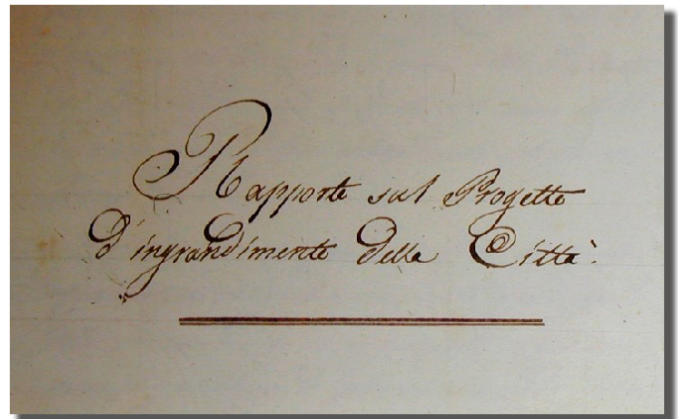 Rapporto sul Progetto
d'ingrandimento della Città.